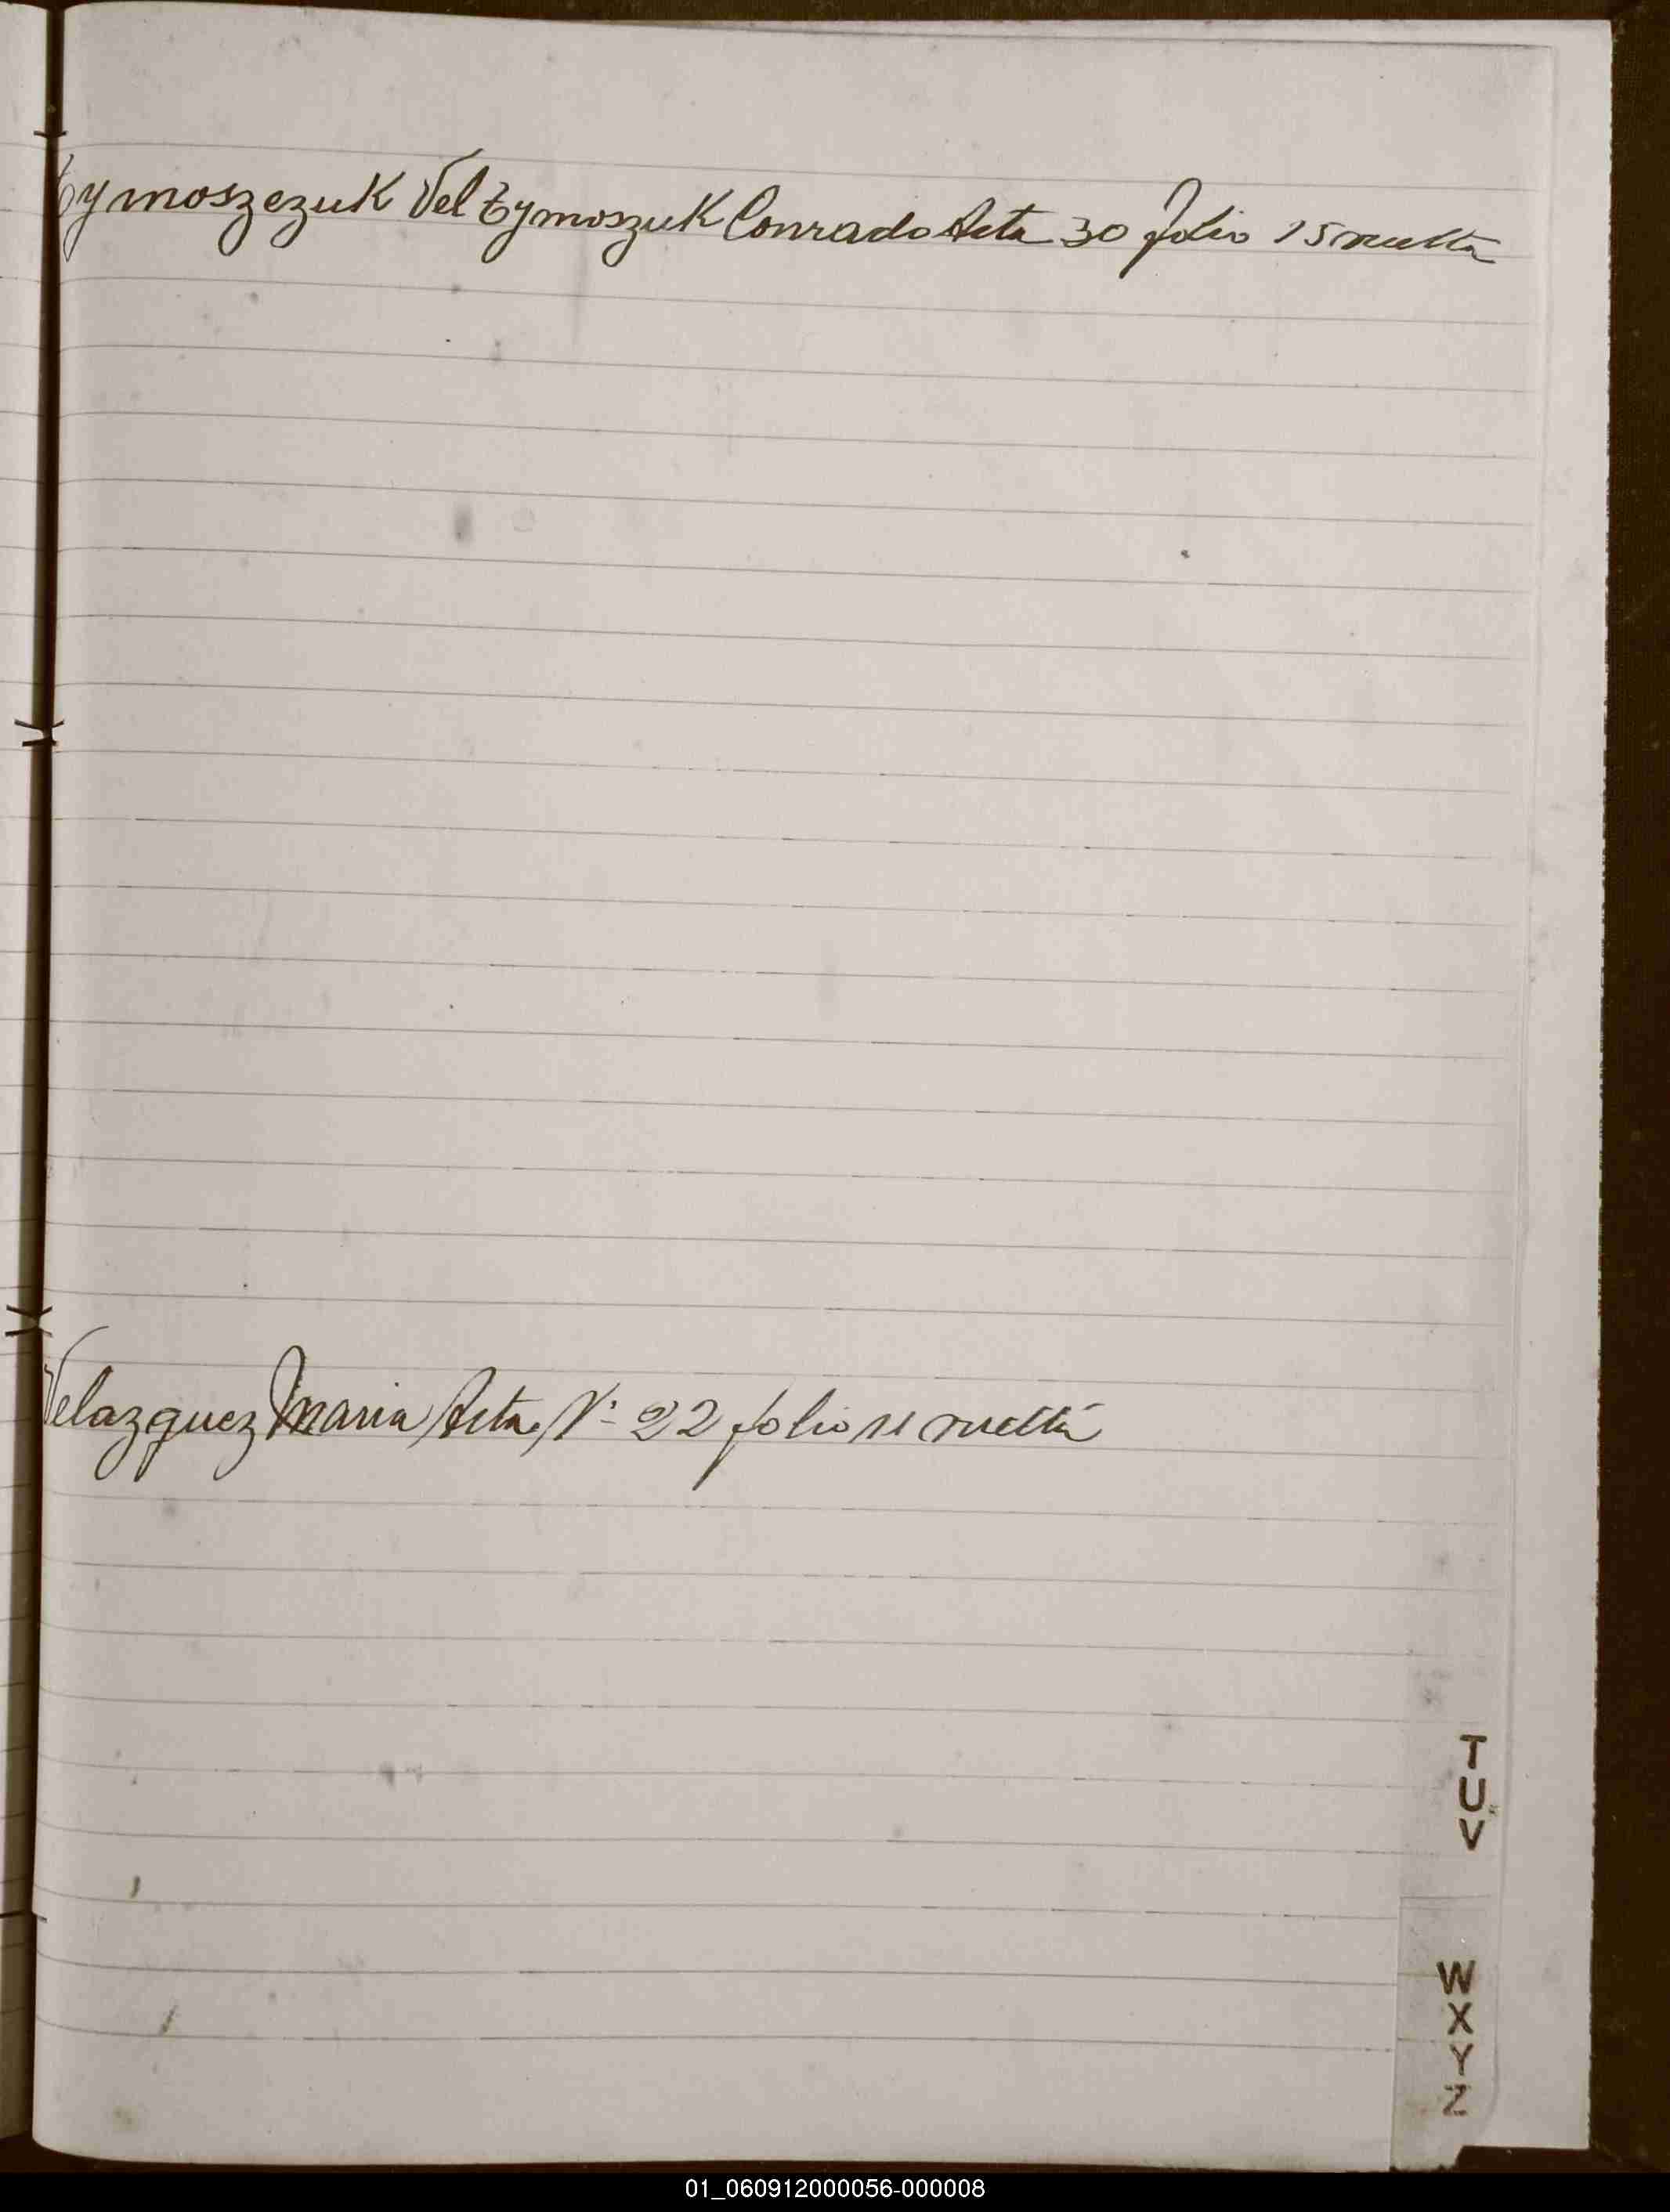 Tymoszezuk Vel Tymoszuk Conrado Acta 30 folio 15 vuelta
Velazquez Maria Acta Nº 22 folio 11 vuelta
T
U
V
W
X
Y
Z
01_060912000056-000008